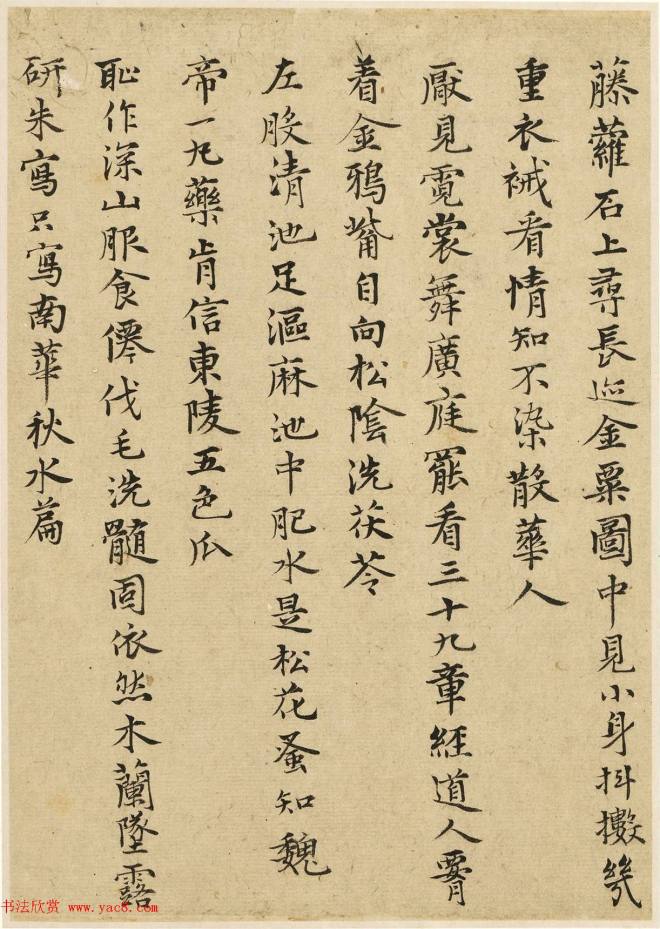 藤蘿石上尋長巡金粟圖中見小身抖擻幾
重衣裓看情知不染散華人
厭見霓裳舞廣庭罷看三十九章經道人𦝫
着金鴉觜自向松陰洗茯苓
左股清池足漚麻池中肥水是松花蚤知魏
帝一丸藥肯信東陵五色瓜
恥作深山服食僊伐毛洗髓固依然木蘭墜露
研朱寫只寫南華秋水篇
书法欣赏 www.yac8.com